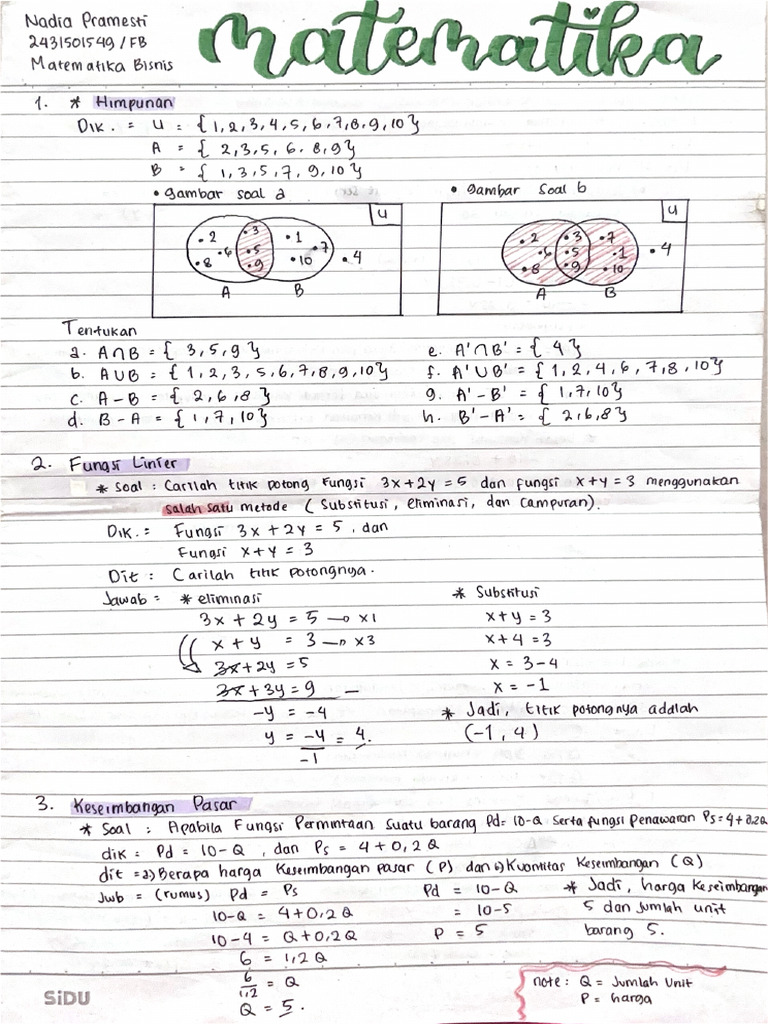 Nadia Pramesti
2431501549 / FB
Matematika Bisnis
matematika
1. * Himpunan
Dik. = U = { 1,2,3,4,5,6,7,8,9,10 }
A = { 2,3,5,6.8,9 }
B = { 1,3,5,7,9,10 }
• gambar soal a
• gambar soal b
U
• 2 • 3 • 1
• 6 • 5 • 7
• 8 • 9 • 10 • 4
A B
U
• 2 • 3 • 7
• 6 • 5 • 1 • 4
• 8 • 9 • 10
A B
Tentukan
a. A∩B = { 3,5,9 }
b. A∪B = { 1,2,3,5,6,7,8,9,10 }
c. A-B = { 2,6,8 }
d. B-A = { 1,7,10 }
e. A'∩B' = { 4 }
f. A'∪B' = { 1,2,4,6,7,8,10 }
g. A'-B' = { 1,7,10 }
h. B'-A' = { 2,6,8 }
2. Fungsi Linier
* Soal : Carilah titik potong Fungsi 3x+2y = 5 dan fungsi x+y = 3 menggunakan
salah satu metode ( Substitusi, eliminasi, dan campuran).
Dik. = Fungsi 3x + 2y = 5 , dan
Fungsi x+y = 3
Dit : Carilah titik potongnya.
Jawab = * eliminasi
3x + 2y = 5 → x1
x + y = 3 → x3
3x + 2y = 5
3x + 3y = 9 −
-y = -4
y = -4 = 4.
-1
* Substitusi
x+y = 3
x+4 = 3
x = 3-4
x = -1
* Jadi, titik potongnya adalah
(-1, 4)
3. Keseimbangan Pasar
* Soal : Apabila Fungsi Permintaan Suatu barang Pd = 10-Q serta fungsi penawaran Ps = 4 + 0,2Q
dik = Pd = 10-Q , dan Ps = 4 + 0,2Q
dit = a) Berapa harga Keseimbangan pasar (P) dan b) Kuantitas Keseimbangan (Q)
Jwb = (rumus) Pd = Ps
10-Q = 4+0,2Q
10-4 = Q+0,2Q
6 = 1,2Q
6 = Q
1,2
Q = 5.
Pd = 10-Q
= 10-5
P = 5
* Jadi, harga Keseimbangan
5 dan jumlah unit
barang 5.
note : Q = Jumlah Unit
P = harga
SiDU